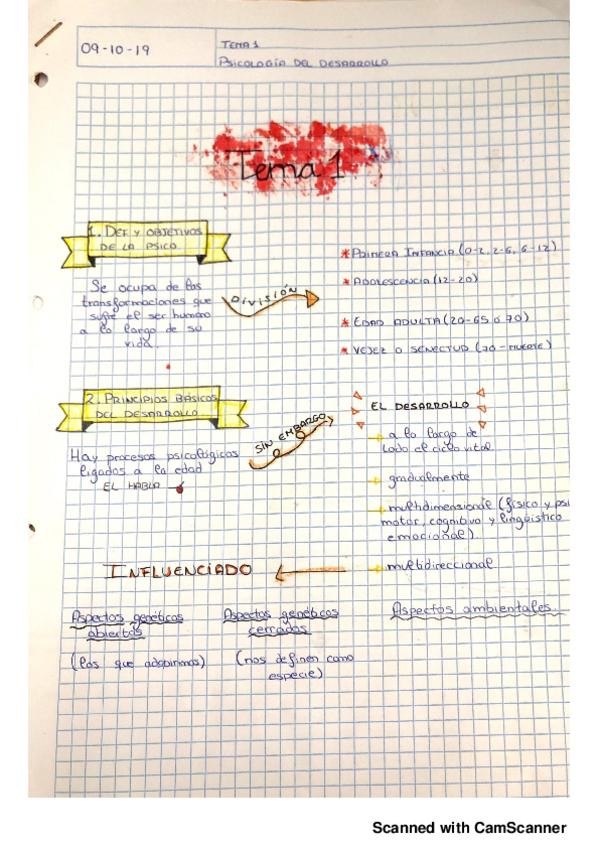 09-10-19
TEMA 1
PSICOLOGÍA DEL DESARROLLO
Tema 1
1. DEF Y OBJETIVOS
DE LA PSICO
Se ocupa de las
transformaciones que
sufre el ser humano
a lo largo de su
vida.
DIVISIÓN
* PRIMERA INFANCIA (0-2, 2-6, 6-12)
* ADOLESCENCIA (12-20)
* EDAD ADULTA (20-65 ó 70)
* VEJEZ O SENECTUD (70-MUERTE)
2. PRINCIPIOS BÁSICOS
DEL DESARROLLO
Hay procesos psicológicos
ligados a la edad
EL HABLA
SIN EMBARGO
EL DESARROLLO
a lo largo de
todo el ciclo vital
gradualmente
multidimensional (físico y psi
motor, cognitivo y lingüístico
emocional)
multidireccional
INFLUENCIADO
Aspectos genéticos
abiertos
(los que adquirimos)
Aspectos genéticos
cerrados
(nos definen como
especie)
Aspectos ambientales
Scanned with CamScanner